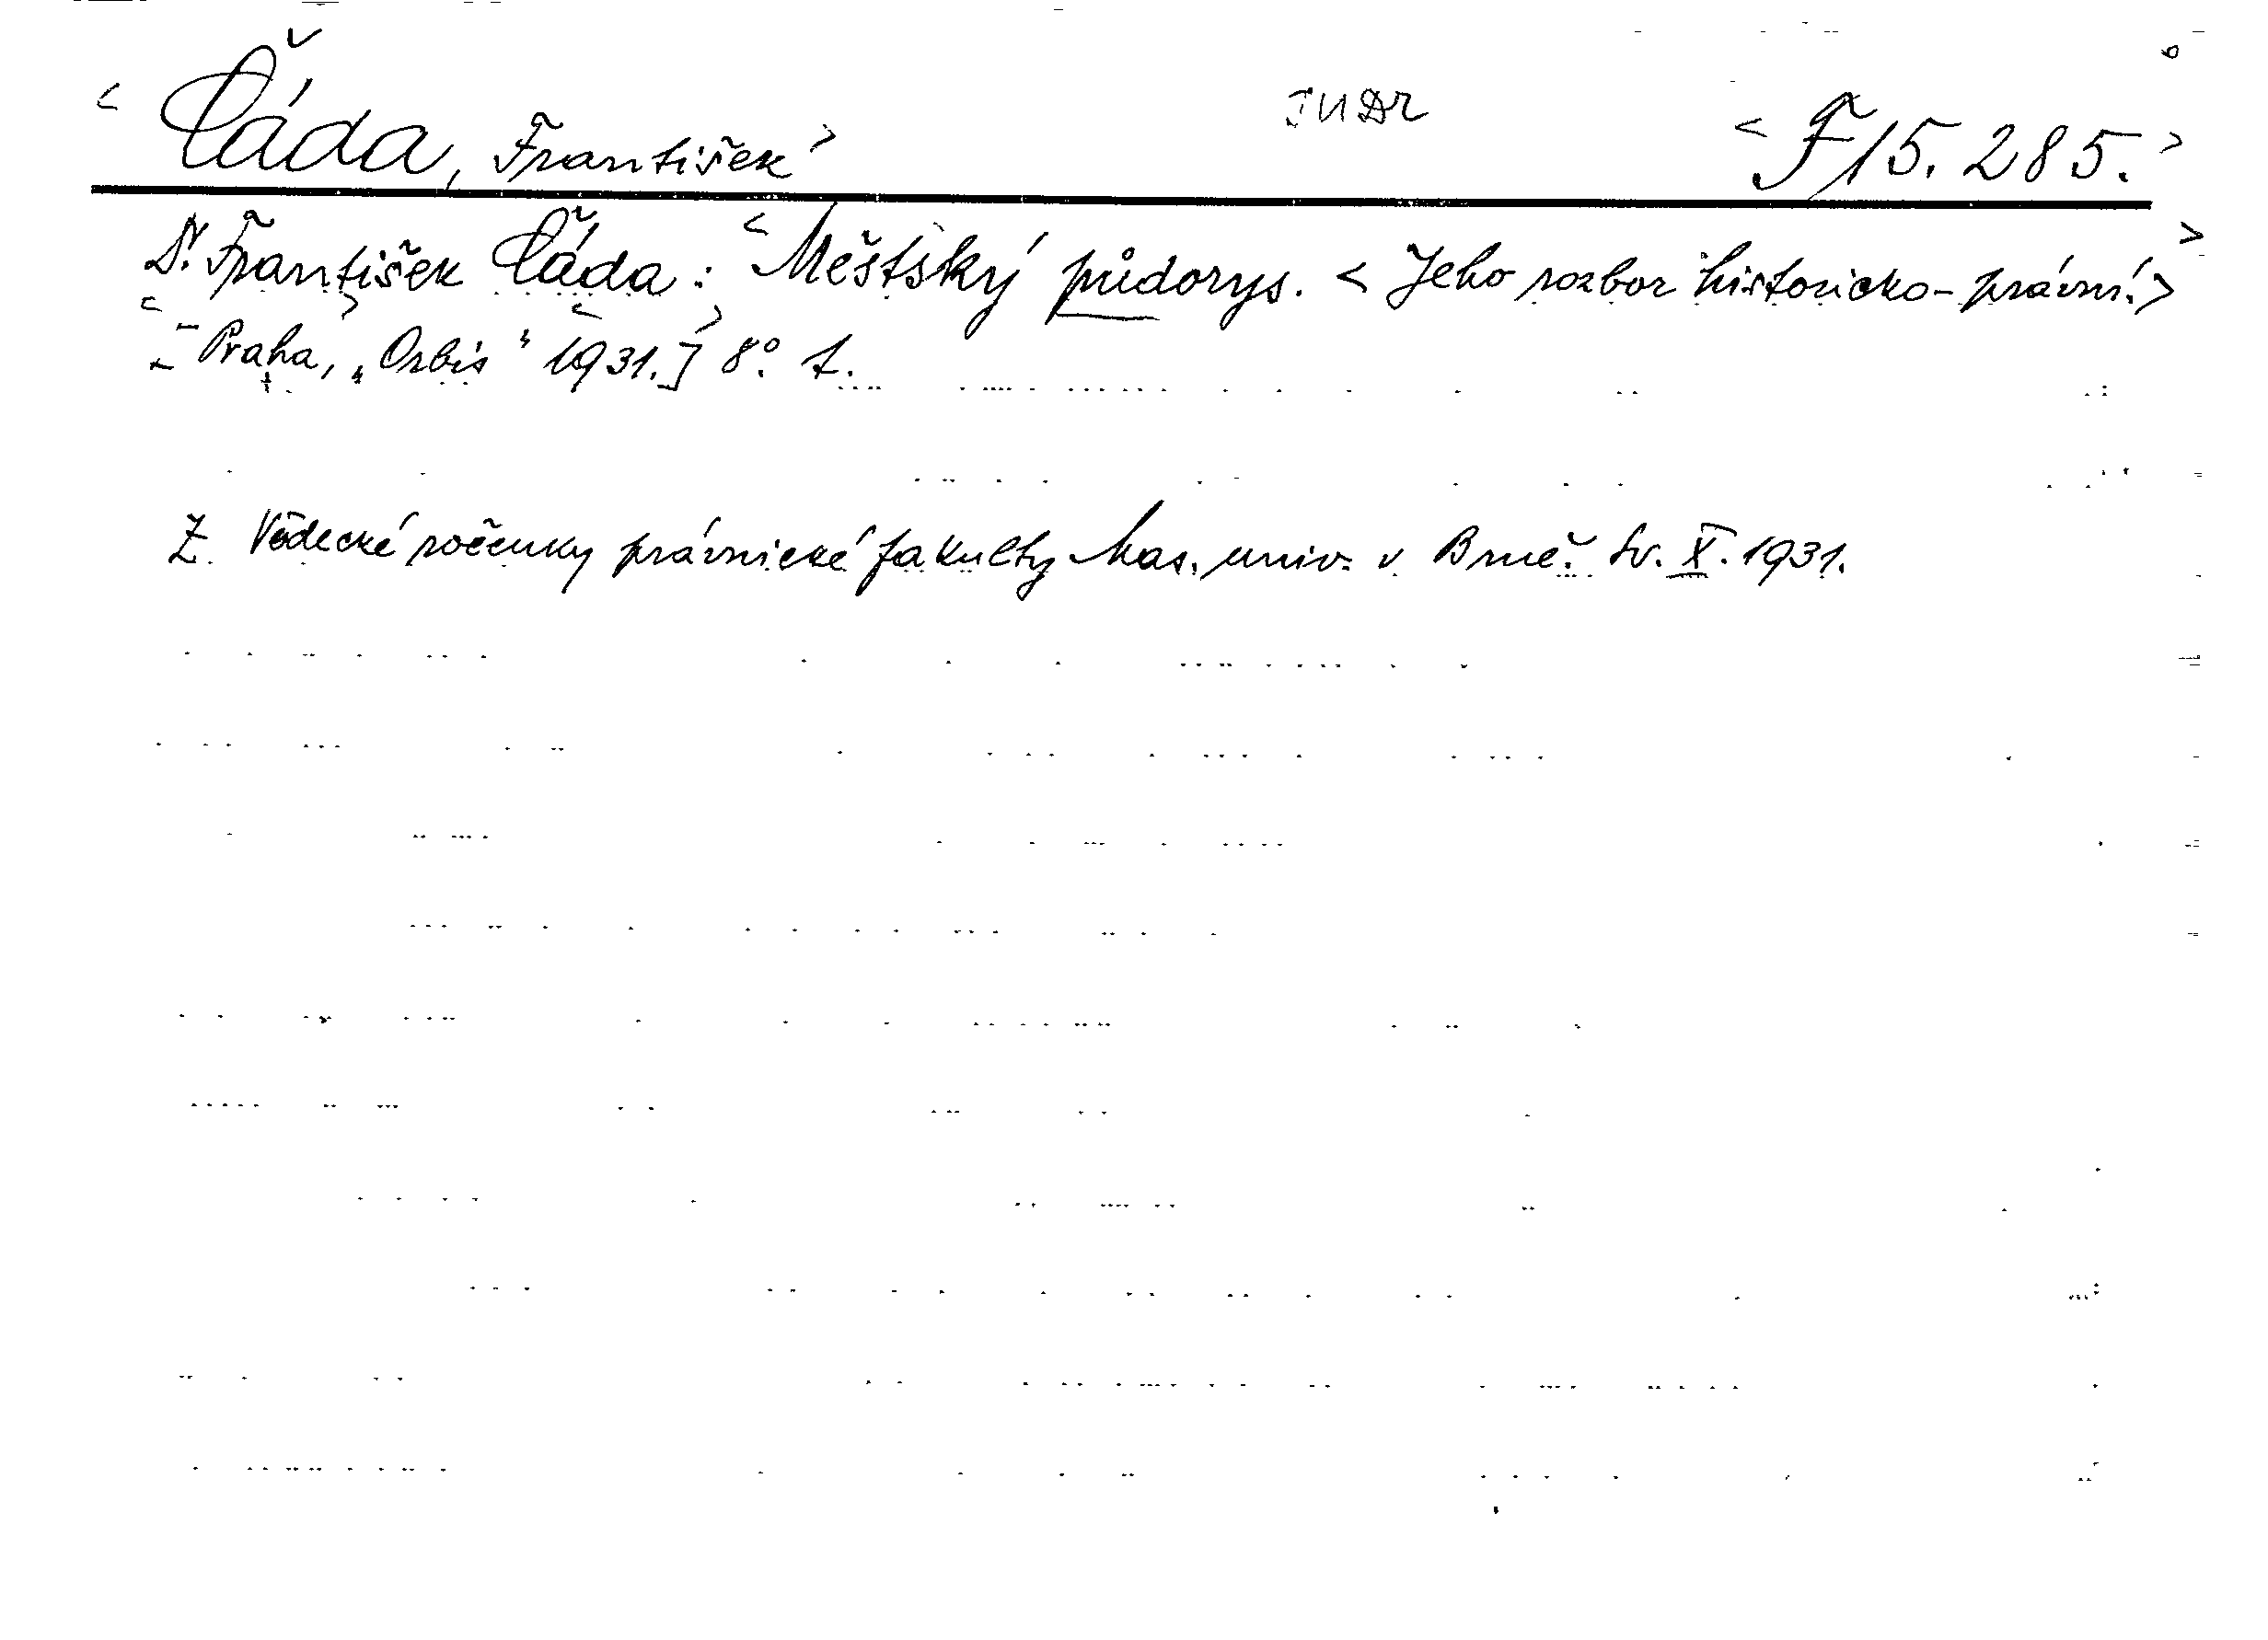 < Čáda, František > JUDr < F 15.285. >
Dr. František Čáda : < Městský půdorys. < Jeho rozbor historicko-právní. > >
[ Praha, „Orbis“ 1931.] 8°. 1.
Z Vědecké ročenky právnické fakulty Mas. univ. v Brně. Sv. X. 1931.